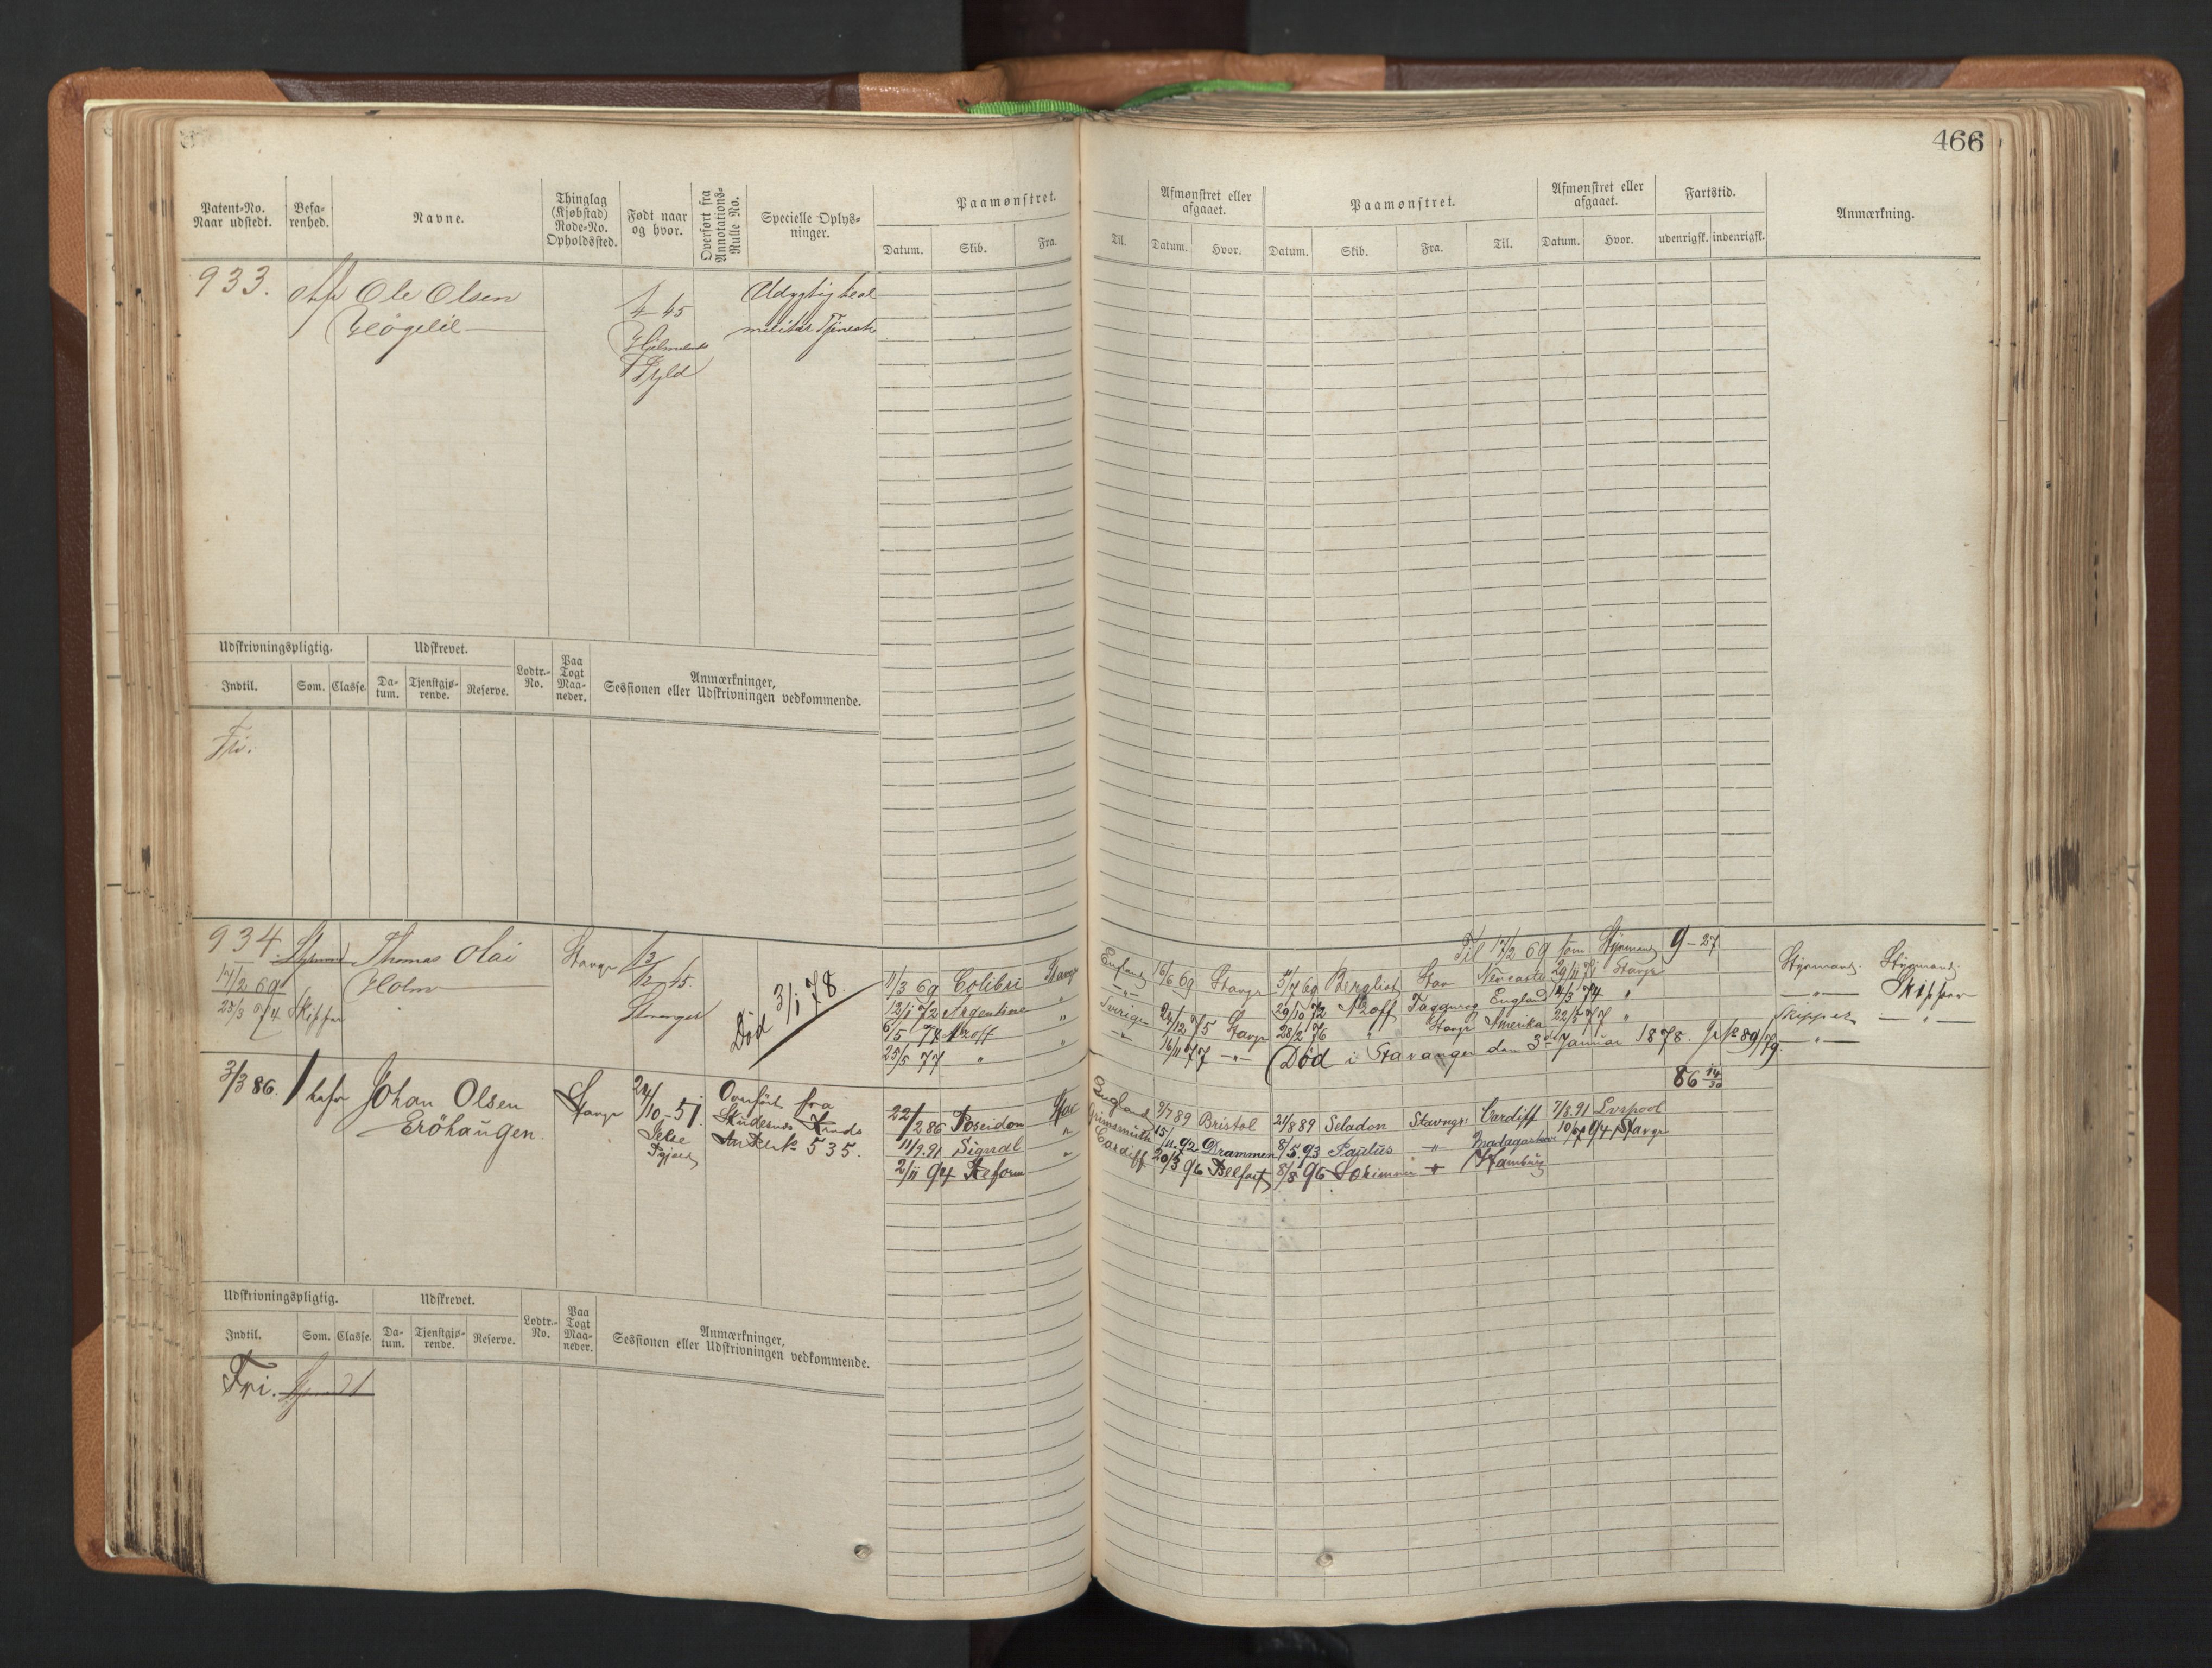 466
Patent-No.
Naar udstedt.
Befa-
renhed.
Navne.
Thinglag
(Kjøbstad)
Rode-No.
Opholdssted.
Født naar
og hvor.
Overført fra
Annotations-
Rulle No.
Specielle Oplys-
ninger.
Paamønstret.
Datum. Skib. Fra.
Til.
Afmønstret eller
afgaaet.
Datum. Hvor.
Paamønstret.
Datum. Skib. Fra. Til.
Afmønstret eller
afgaaet.
Datum. Hvor.
Fartstid.
udenrigsk. indenrigsk.
Anmærkning.
933. Ole Olsen
4 45
Udygtig
militær Tjeneste
Udskrivningspligtig. Udskrevet.
Indtil. Som. Classe. Da-
tum. Tjenstgjø-
rende. Reserve. Lodtr.-
No. Paa
Togt
Maa-
neder. Anmærkninger,
Sessionen eller Udskrivningen vedkommende.
Fri.
934 Styrmand Thomas Olai
Holm
Stavgr
45
Stavanger
17/2 69
25/3 74 Skipper
Død 3/1 78.
Til 17/2 69 som Styrmand 9-27
11/3 69 Colibri Stavgr England 16/6 69 Stavgr 5/7 69 Bergliot Stav Newcastle 29/11 71 Stavgr Styrmand. Styrmand.
12/1 72 Argentine " -"- 29/10 72 Azoff Taganrog England 14/3 74 " -"- Skipper
6/5 74 Azoff " Sverige 24/12 75 Stavgr 28/2 76 " Stavgr Amerika 22/5 77 " Skipper -"-
25/5 77 " " " 16/11 77 -"- Død i Stavanger den 3d Januar 1878. 89/79. -"-
86 14/30
3/3 86. Johan Olsen
Eröhaugen.
Stavgr
24/10-51.
Jelse
Overført fra
Skudesnes
535.
22/2 86 Poseidon Stav England 9/7 89 Bristol 24/8 89 Seladon Stavngr. Cardiff 7/3.91 Lvspool
11/9.91 Signal " Grimsmuth 15/11.92 Drammen 8/5.93 Paulus " Madagaskar 10/7 94 Stavgr
2/11 94 Reform " Cardiff 20/5 96 Belfast 8/8 96 Hamburg
Udskrivningspligtig. Udskrevet.
Indtil. Som. Classe. Da-
tum. Tjenstgjø-
rende. Reserve. Lodtr.-
No. Paa
Togt
Maa-
neder. Anmærkninger,
Sessionen eller Udskrivningen vedkommende.
Fri.